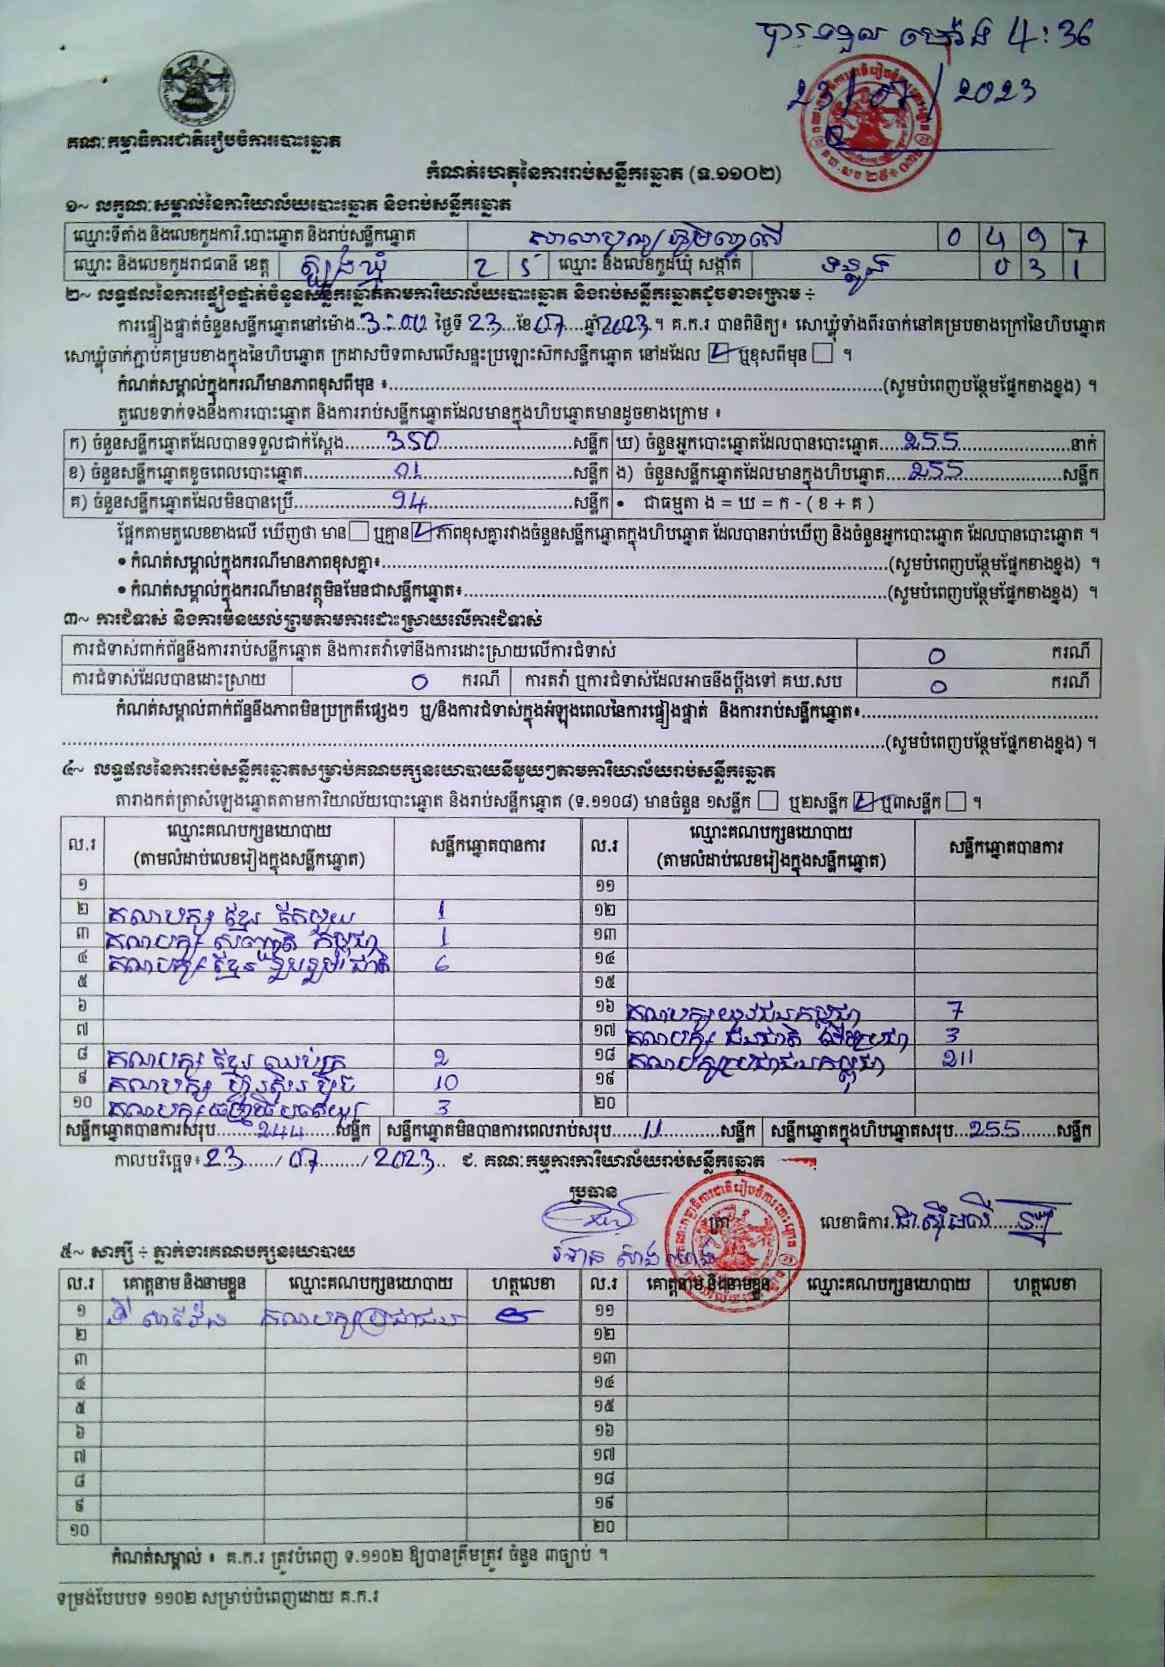 បានទទួល ម៉ោង 4:36
23/07/2023
គណៈកម្មាធិការជាតិរៀបចំការបោះឆ្នោត
កំណត់ហេតុនៃការរាប់សន្លឹកឆ្នោត (ទ.១១០២)
១~ លក្ខណៈសម្គាល់នៃការិយាល័យបោះឆ្នោត និងរាប់សន្លឹកឆ្នោត
ឈ្មោះទីតាំង និងលេខកូដការិ.បោះឆ្នោត និងរាប់សន្លឹកឆ្នោត 0 4 9 7
ឈ្មោះ និងលេខកូដរាជធានី ខេត្ត ត្បូងឃ្មុំ 2 5 ឈ្មោះ និងលេខកូដឃុំ សង្កាត់ ទន្លូង 0 3 1
២~ លទ្ធផលនៃការផ្ទៀងផ្ទាត់ចំនួនសន្លឹកឆ្នោតតាមការិយាល័យបោះឆ្នោត និងរាប់សន្លឹកឆ្នោតដូចខាងក្រោម ÷
ការផ្ទៀងផ្ទាត់ចំនួនសន្លឹកឆ្នោតនៅម៉ោង..3:00 ថ្ងៃទី 23...ខែ07....ឆ្នាំ2023។ គ.ក.រ បានពិនិត្យ៖ សោឃ្លុំទាំងពីរចាក់នៅគម្របខាងក្រៅនៃហិបឆ្នោត
សោឃ្លុំចាក់ភ្ជាប់គម្របខាងក្នុងនៃហិបឆ្នោត ក្រដាសបិទពាសលើសន្ទះប្រឡោះស៊កសន្លឹកឆ្នោត នៅដដែល ☑ ឬខុសពីមុន ☐ ។
កំណត់សម្គាល់ក្នុងករណីមានភាពខុសពីមុន ៖..........(សូមបំពេញបន្ថែមផ្នែកខាងខ្នង) ។
តួលេខទាក់ទងនឹងការបោះឆ្នោត និងការរាប់សន្លឹកឆ្នោតដែលមានក្នុងហិបឆ្នោតមានដូចខាងក្រោម ៖
ក) ចំនួនសន្លឹកឆ្នោតដែលបានទទួលជាក់ស្តែង........350..........សន្លឹក ឃ) ចំនួនអ្នកបោះឆ្នោតដែលបានបោះឆ្នោត.....255..........នាក់
ខ) ចំនួនសន្លឹកឆ្នោតខូចពេលបោះឆ្នោត..........01..........សន្លឹក ង) ចំនួនសន្លឹកឆ្នោតដែលមានក្នុងហិបឆ្នោត.....255..........សន្លឹក
គ) ចំនួនសន្លឹកឆ្នោតដែលមិនបានប្រើ..........94..........សន្លឹក • ជាធម្មតា ង = ឃ = ក - ( ខ + គ )
ផ្អែកតាមតួលេខខាងលើ ឃើញថា មាន ☐ ឬគ្មាន ☑ ភាពខុសគ្នារវាងចំនួនសន្លឹកឆ្នោតក្នុងហិបឆ្នោត ដែលបានរាប់ឃើញ និងចំនួនអ្នកបោះឆ្នោត ដែលបានបោះឆ្នោត ។
• កំណត់សម្គាល់ក្នុងករណីមានភាពខុសគ្នា៖..........(សូមបំពេញបន្ថែមផ្នែកខាងខ្នង) ។
• កំណត់សម្គាល់ក្នុងករណីមានវត្ថុមិនមែនជាសន្លឹកឆ្នោត៖..........(សូមបំពេញបន្ថែមផ្នែកខាងខ្នង) ។
៣~ ការជំទាស់ និងការមិនយល់ព្រមតាមការដោះស្រាយលើការជំទាស់
ការជំទាស់ពាក់ព័ន្ធនឹងការរាប់សន្លឹកឆ្នោត និងការតវ៉ាទៅនឹងការដោះស្រាយលើការជំទាស់ 0 ករណី
ការជំទាស់ដែលបានដោះស្រាយ 0 ករណី ការតវ៉ា ឬការជំទាស់ដែលអាចនឹងប្តឹងទៅ គឃ.សប 0 ករណី
កំណត់សម្គាល់ពាក់ព័ន្ធនឹងភាពមិនប្រក្រតីផ្សេងៗ ឬ/និងការជំទាស់ក្នុងអំឡុងពេលនៃការផ្ទៀងផ្ទាត់ និងការរាប់សន្លឹកឆ្នោត៖..........
..........(សូមបំពេញបន្ថែមផ្នែកខាងខ្នង) ។
៤~ លទ្ធផលនៃការរាប់សន្លឹកឆ្នោតសម្រាប់គណបក្សនយោបាយនីមួយៗតាមការិយាល័យរាប់សន្លឹកឆ្នោត
តារាងកត់ត្រាសំឡេងឆ្នោតតាមការិយាល័យបោះឆ្នោត និងរាប់សន្លឹកឆ្នោត (ទ.១១០៨) មានចំនួន ១សន្លឹក ☐ ឬ២សន្លឹក ☑ ឬ៣សន្លឹក ☐ ។
ល.រ ឈ្មោះគណបក្សនយោបាយ (តាមលំដាប់លេខរៀងក្នុងសន្លឹកឆ្នោត) សន្លឹកឆ្នោតបានការ ល.រ ឈ្មោះគណបក្សនយោបាយ (តាមលំដាប់លេខរៀងក្នុងសន្លឹកឆ្នោត) សន្លឹកឆ្នោតបានការ
១ ១១
២ គណបក្ស ខ្មែរ តែមួយ 1 ១២
៣ គណបក្ស សញ្ជាតិ កម្ពុជា 1 ១៣
៤ គណបក្ស ខ្មែរ រួបរួមជាតិ 6 ១៤
៥ ១៥
៦ ១៦ គណបក្សយុវជនកម្ពុជា 7
៧ ១៧ គណបក្ស ជនជាតិដើមប្រជា 3
៨ គណបក្ស ខ្មែរ ឈប់ក្រ 2 ១៨ គណបក្សប្រជាជនកម្ពុជា 211
៩ គណបក្ស ហ៊្វុនស៊ិនប៉ិច 10 ១៩
១០ គណបក្ស 3 ២០
សន្លឹកឆ្នោតបានការសរុប........244.......សន្លឹក សន្លឹកឆ្នោតមិនបានការពេលរាប់សរុប......11..........សន្លឹក សន្លឹកឆ្នោតក្នុងហិបឆ្នោតសរុប...255.......សន្លឹក
កាលបរិច្ឆេទ៖ 23...../07......../2023.. ជ. គណៈកម្មការការិយាល័យរាប់សន្លឹកឆ្នោត
ប្រធាន ត្រា លេខាធិការ
៥~ សាក្សី ÷ ភ្នាក់ងារគណបក្សនយោបាយ
ល.រ គោត្តនាម និងនាមខ្លួន ឈ្មោះគណបក្សនយោបាយ ហត្ថលេខា ល.រ គោត្តនាម និងនាមខ្លួន ឈ្មោះគណបក្សនយោបាយ ហត្ថលេខា
១ គណបក្សប្រជាជន ១១
២ ១២
៣ ១៣
៤ ១៤
៥ ១៥
៦ ១៦
៧ ១៧
៨ ១៨
៩ ១៩
១០ ២០
កំណត់សម្គាល់ ៖ គ.ក.រ ត្រូវបំពេញ ទ.១១០២ ឱ្យបានត្រឹមត្រូវ ចំនួន ៣ច្បាប់ ។
ទម្រង់បែបបទ ១១០២ សម្រាប់បំពេញដោយ គ.ក.រ